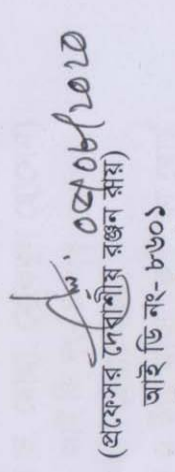 ০৭/০৮/২০২০
(প্রফেসর দেবাশীষ রঞ্জন রায়)
আই ডি নং- ৮৬০১